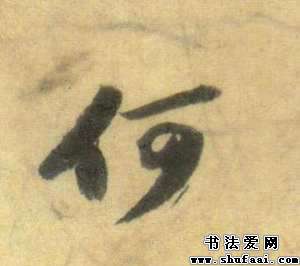 何
书法爱网
www.shufaai.com